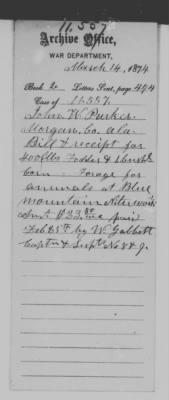 11.557
Archive Office,
WAR DEPARTMENT,
March 14, 1874
Book 20 Letters Sent, page 494
Case of 11.557.
John W. Parker
Morgan. Co. Ala.
Bill & receipt for
400 lbs Fodder &
Corn - Forage for
animals at Blue
Mountain Nitre works
paid
Feb by W. Gabbett
Capt & Supt No. 8 & 9.